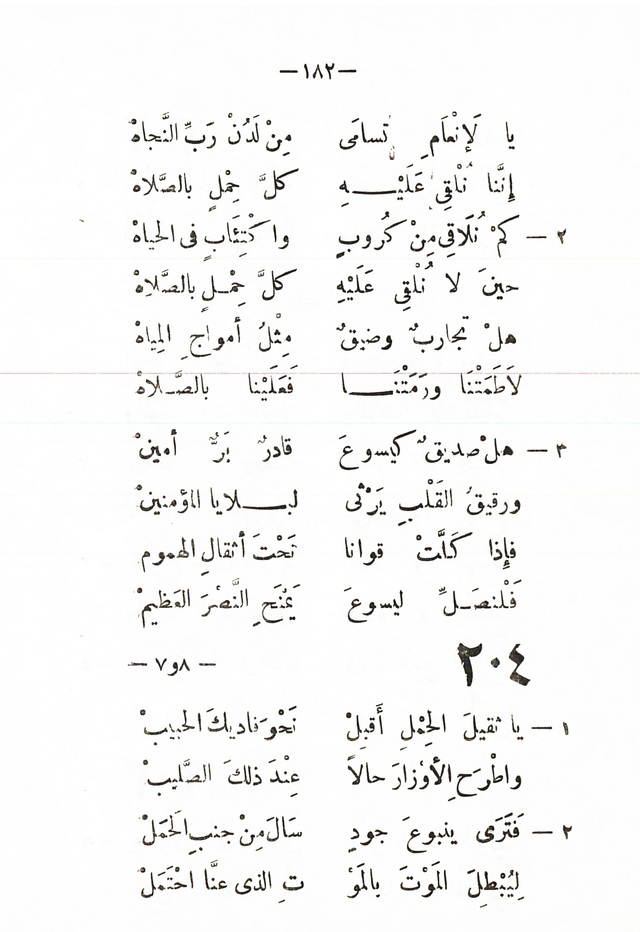 —١٨٢—
يا لَإِنْعَامٍ تَسامَى مِنْ لَدُنْ رَبِّ النَّجاهْ
إِنَّنا نُلْقِى عَلَيْـــهِ كلَّ حِمْلٍ بالصَّلاهْ
٢ — كمْ نُلَاقِى مِنْ كُروبٍ واكْتِئَابٍ فى الحياهْ
حينَ لا نُلْقِى عَلَيْهِ كلَّ حِمْـلٍ بالصَّلاِهْ
هلْ تجاربٌ وضيقٌ مِثْلُ أمواجِ المِياهْ
لَاطَمَتْنَا ورَمَتْنَــــا فَعَلَيْنا بالصَّـلاهْ
٣ — هلْ صديقٌ كيسوعَ قادرٌ بَرٌّ أمينْ
ورقيقُ القَلْبِ يَرْثى لبـــلايا المؤمنينْ
فإِذا كَلَّتْ قوانا تَحْتَ أثقالِ الهمومِ
فَلْنصَـلِّ ليسوعَ يَمْنَحِ النَّصْرَ العَظيمْ
٢٠٤ — ٨و٧ —
١ — يا ثقيلَ الحِمْلِ أَقبِلْ نَحْوَ فاديكَ الحبيبْ
واطْرَحِ الأَوْزارَ حالاً عِنْدَ ذلكَ الصَّليبْ
٢ — فَتَرَى ينبوعَ جودٍ سَالَ مِنْ جنبِ الحَمَلْ
لِيُبْطِلَ المَوْتَ بالمَوْ تِ الذى عنَّا احْتَمَلْ